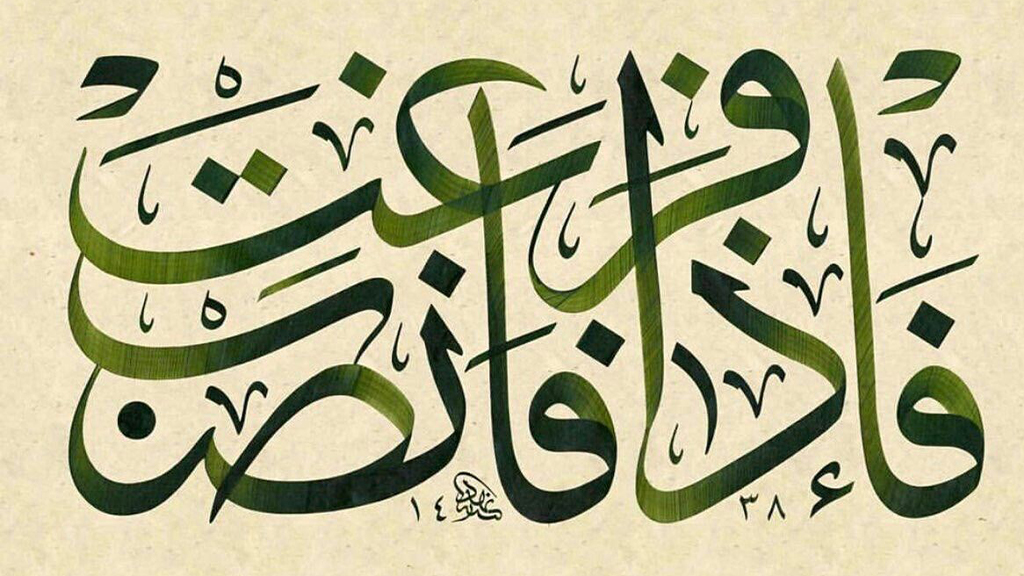 فَإِذَا فَرَغْتَ
فَانْصَبْ
١٤ ٣٨